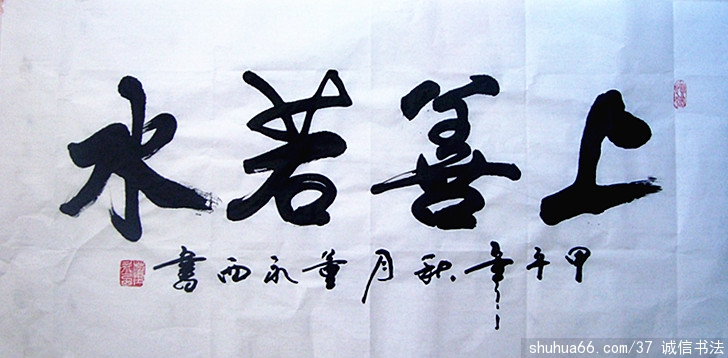 上善若水
甲午年秋月董永西書
shuhua66.com/37 诚信书法